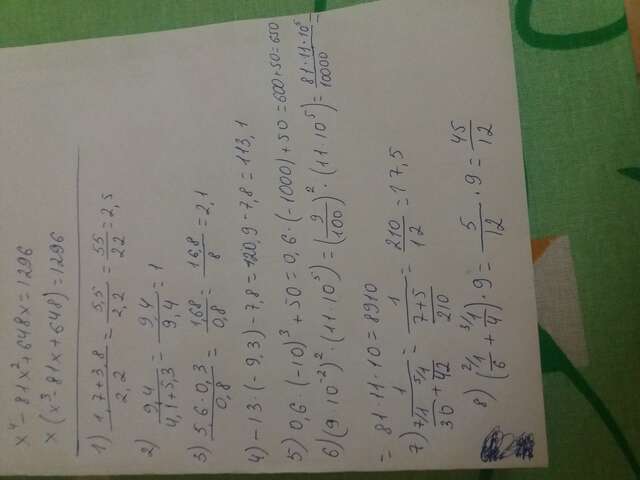 x⁴ - 81x² + 648x = 1296
x(x³ - 81x + 648) = 1296
1) (1,7+3,8)/2,2 = 5,5/2,2 = 55/22 = 2,5
2) 9,4/(4,1+5,3) = 9,4/9,4 = 1
3) (5,6·0,3)/0,8 = 1,68/0,8 = 16,8/8 = 2,1
4) -13·(-9,3)-7,8 = 120,9-7,8 = 113,1
5) 0,6·(-10)³+50 = 0,6·(-1000)+50 = 600+50 = 650
6) (9·10⁻²)²·(11·10⁵) = (9/100)²·(11·10⁵) = 81·11·10⁵/10000 =
= 81·11·10 = 8910
7) 1/(⁷⁾1/30 + ⁵⁾1/42) = 1/((7+5)/210) = 210/12 = 17,5
8) (²⁾1/6 + ³⁾1/4)·9 = 5/12·9 = 45/12